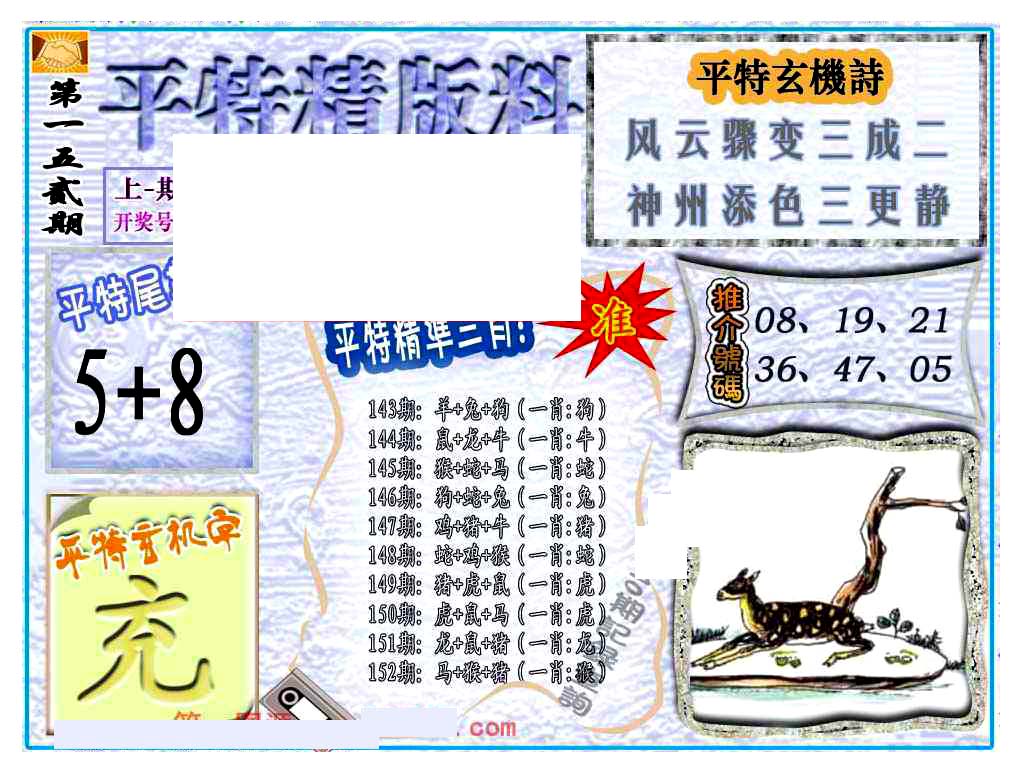 平特精版料
第一五贰期
上-期
开奖号
平特玄機詩
风云骤变三成二
神州添色三更静
平特尾
5+8
平特精準三肖!
准
推介號碼
08、19、21
36、47、05
143期: 羊+兔+狗(一肖:狗)
144期: 鼠+龙+牛(一肖:牛)
145期: 猴+蛇+马(一肖:蛇)
146期: 狗+蛇+兔(一肖:兔)
147期: 鸡+猪+牛(一肖:猪)
148期: 蛇+鸡+猴(一肖:蛇)
149期: 猪+虎+鼠(一肖:虎)
150期: 虎+鼠+马(一肖:虎)
151期: 龙+鼠+猪(一肖:龙)
152期: 马+猴+猪(一肖:猴)
平特玄机字
充
com